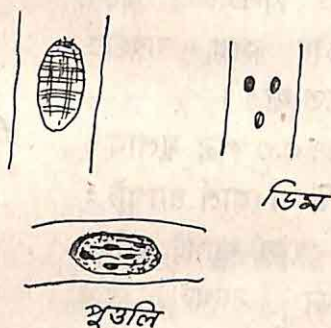 ডিম
পুত্তলি